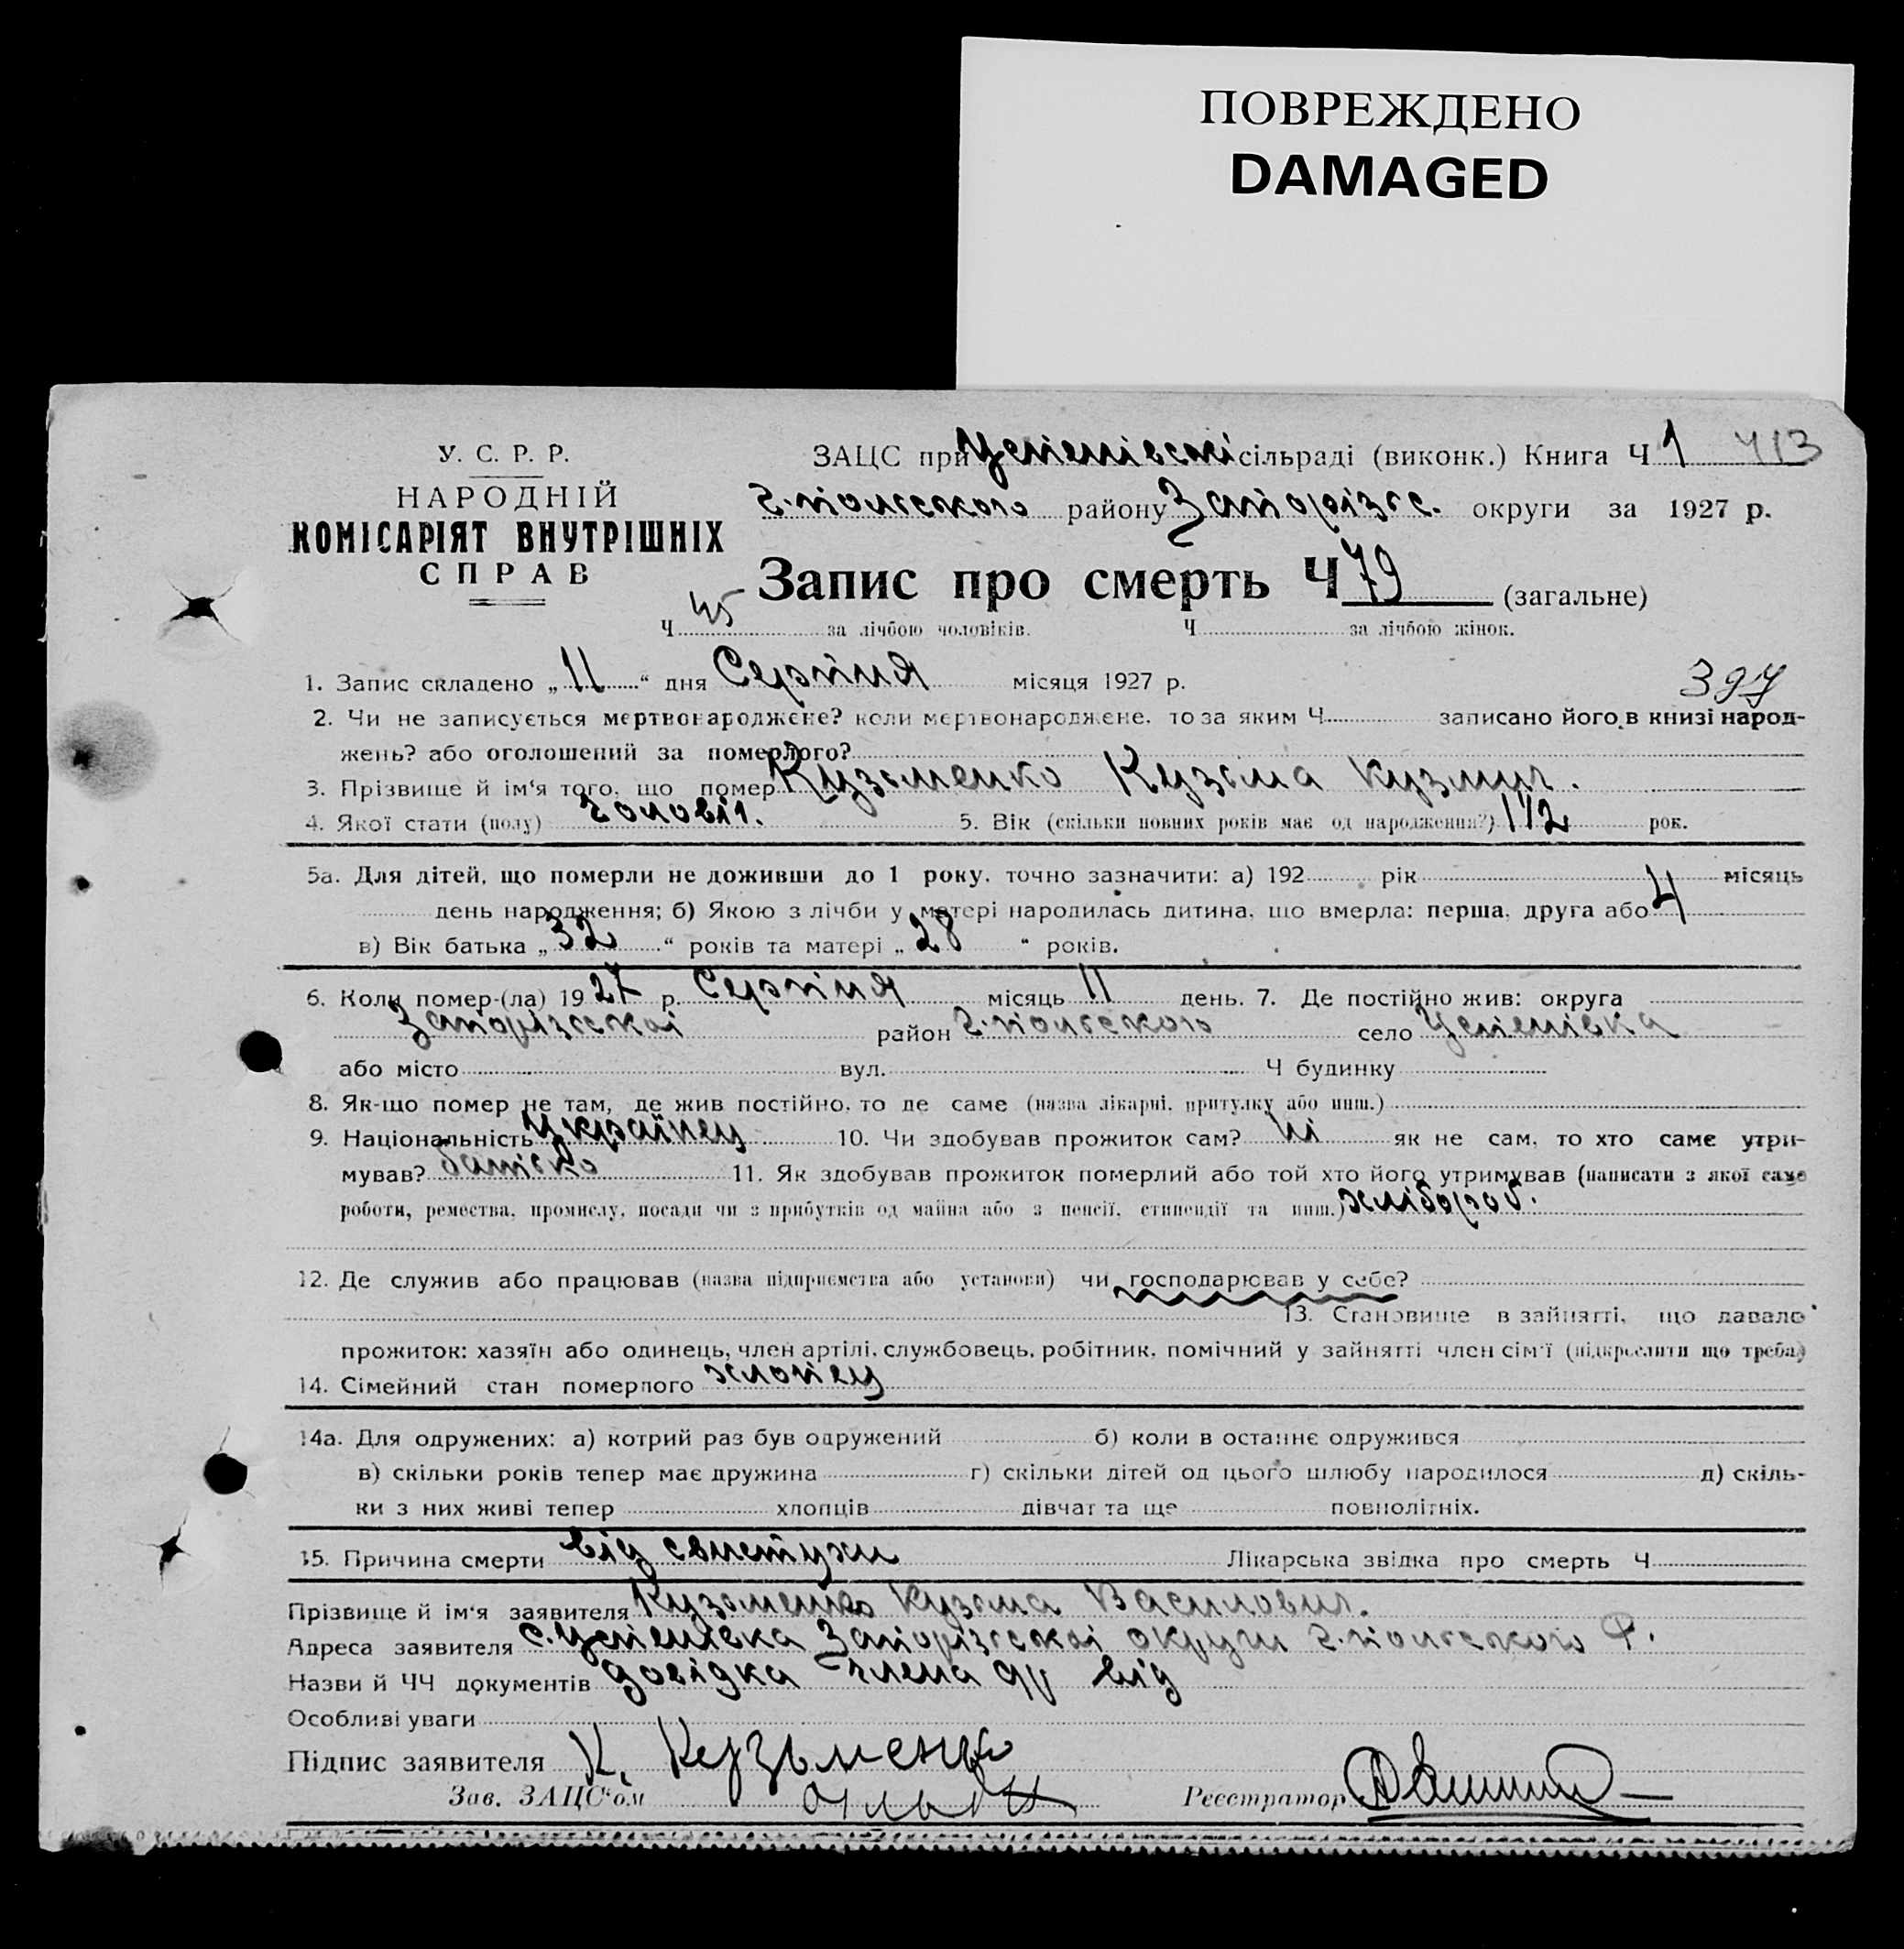 ПОВРЕЖДЕНО
DAMAGED
У. С. Р. Р.
НАРОДНІЙ
КОМІСАРІЯТ ВНУТРІШНІХ
СПРАВ
ЗАЦС при Успенівські сільраді (виконк.) Книга Ч 1 413
г.-польського району Запорізьс. округи за 1927 р.
Запис про смерть Ч 79 (загальне)
Ч 45 за лічбою чоловіків. Ч за лічбою жінок.
1. Запис складено „ 11 “ дня Серпня місяця 1927 р. 397
2. Чи не записується мертвонароджене? коли мертвонароджене, то за яким Ч записано його в книзі народ-
жень? або оголошений за померлого?
3. Прізвище й ім'я того, що помер Кузьменко Кузьма Кузмич.
4. Якої стати (полу) чоловіч. 5. Вік (скільки повних років має од народження?) 1 1/2 рок.
5а. Для дітей, що померли не доживши до 1 року, точно зазначити: а) 192 рік місяць
день народження; б) Якою з лічби у матері народилась дитина, що вмерла: перша, друга або 4
в) Вік батька „ 32 “ років та матері „ 28 “ років.
6. Коли помер-(ла) 19 27 р. Серпня місяць 11 день. 7. Де постійно жив: округа
Запорізської район г.-польського село Успенівка
або місто вул. Ч будинку
8. Як-що помер не там, де жив постійно, то де саме (назва лікарні, притулку або инш.)
9. Національність Українец 10. Чи здобував прожиток сам? ні як не сам, то хто саме утри-
мував? батько 11. Як здобував прожиток померлий або той хто його утримував (написати з якої саме
роботи, ремества, промислу, посади чи з прибутків од майна або з пенсії, стипендії та инш.) хлібороб.
12. Де служив або працював (назва підприємства або установи) чи господарював у себе?
13. Становище в зайнятті, що давало
прожиток: хазяїн або одинець, член артілі, службовець, робітник, помічний у зайнятті член сім'ї (підкреслити що треба)
14. Сімейний стан померлого хлопец
14а. Для одружених: а) котрий раз був одружений б) коли в останнє одружився
в) скільки років тепер має дружина г) скільки дітей од цього шлюбу народилося д) скіль-
ки з них живі тепер хлопців дівчат та ще повнолітніх.
15. Причина смерти від свистухи Лікарська звідка про смерть Ч
Прізвище й ім'я заявителя Кузьменко Кузьма Василович.
Адреса заявителя с. Успенівка Запорізської округи г.-польського Р.
Назви й ЧЧ документів довідка члена с/р від
Особливі уваги
Підпис заявителя К. Кузьменко
Зав. ЗАЦС'ом
Реєстратор